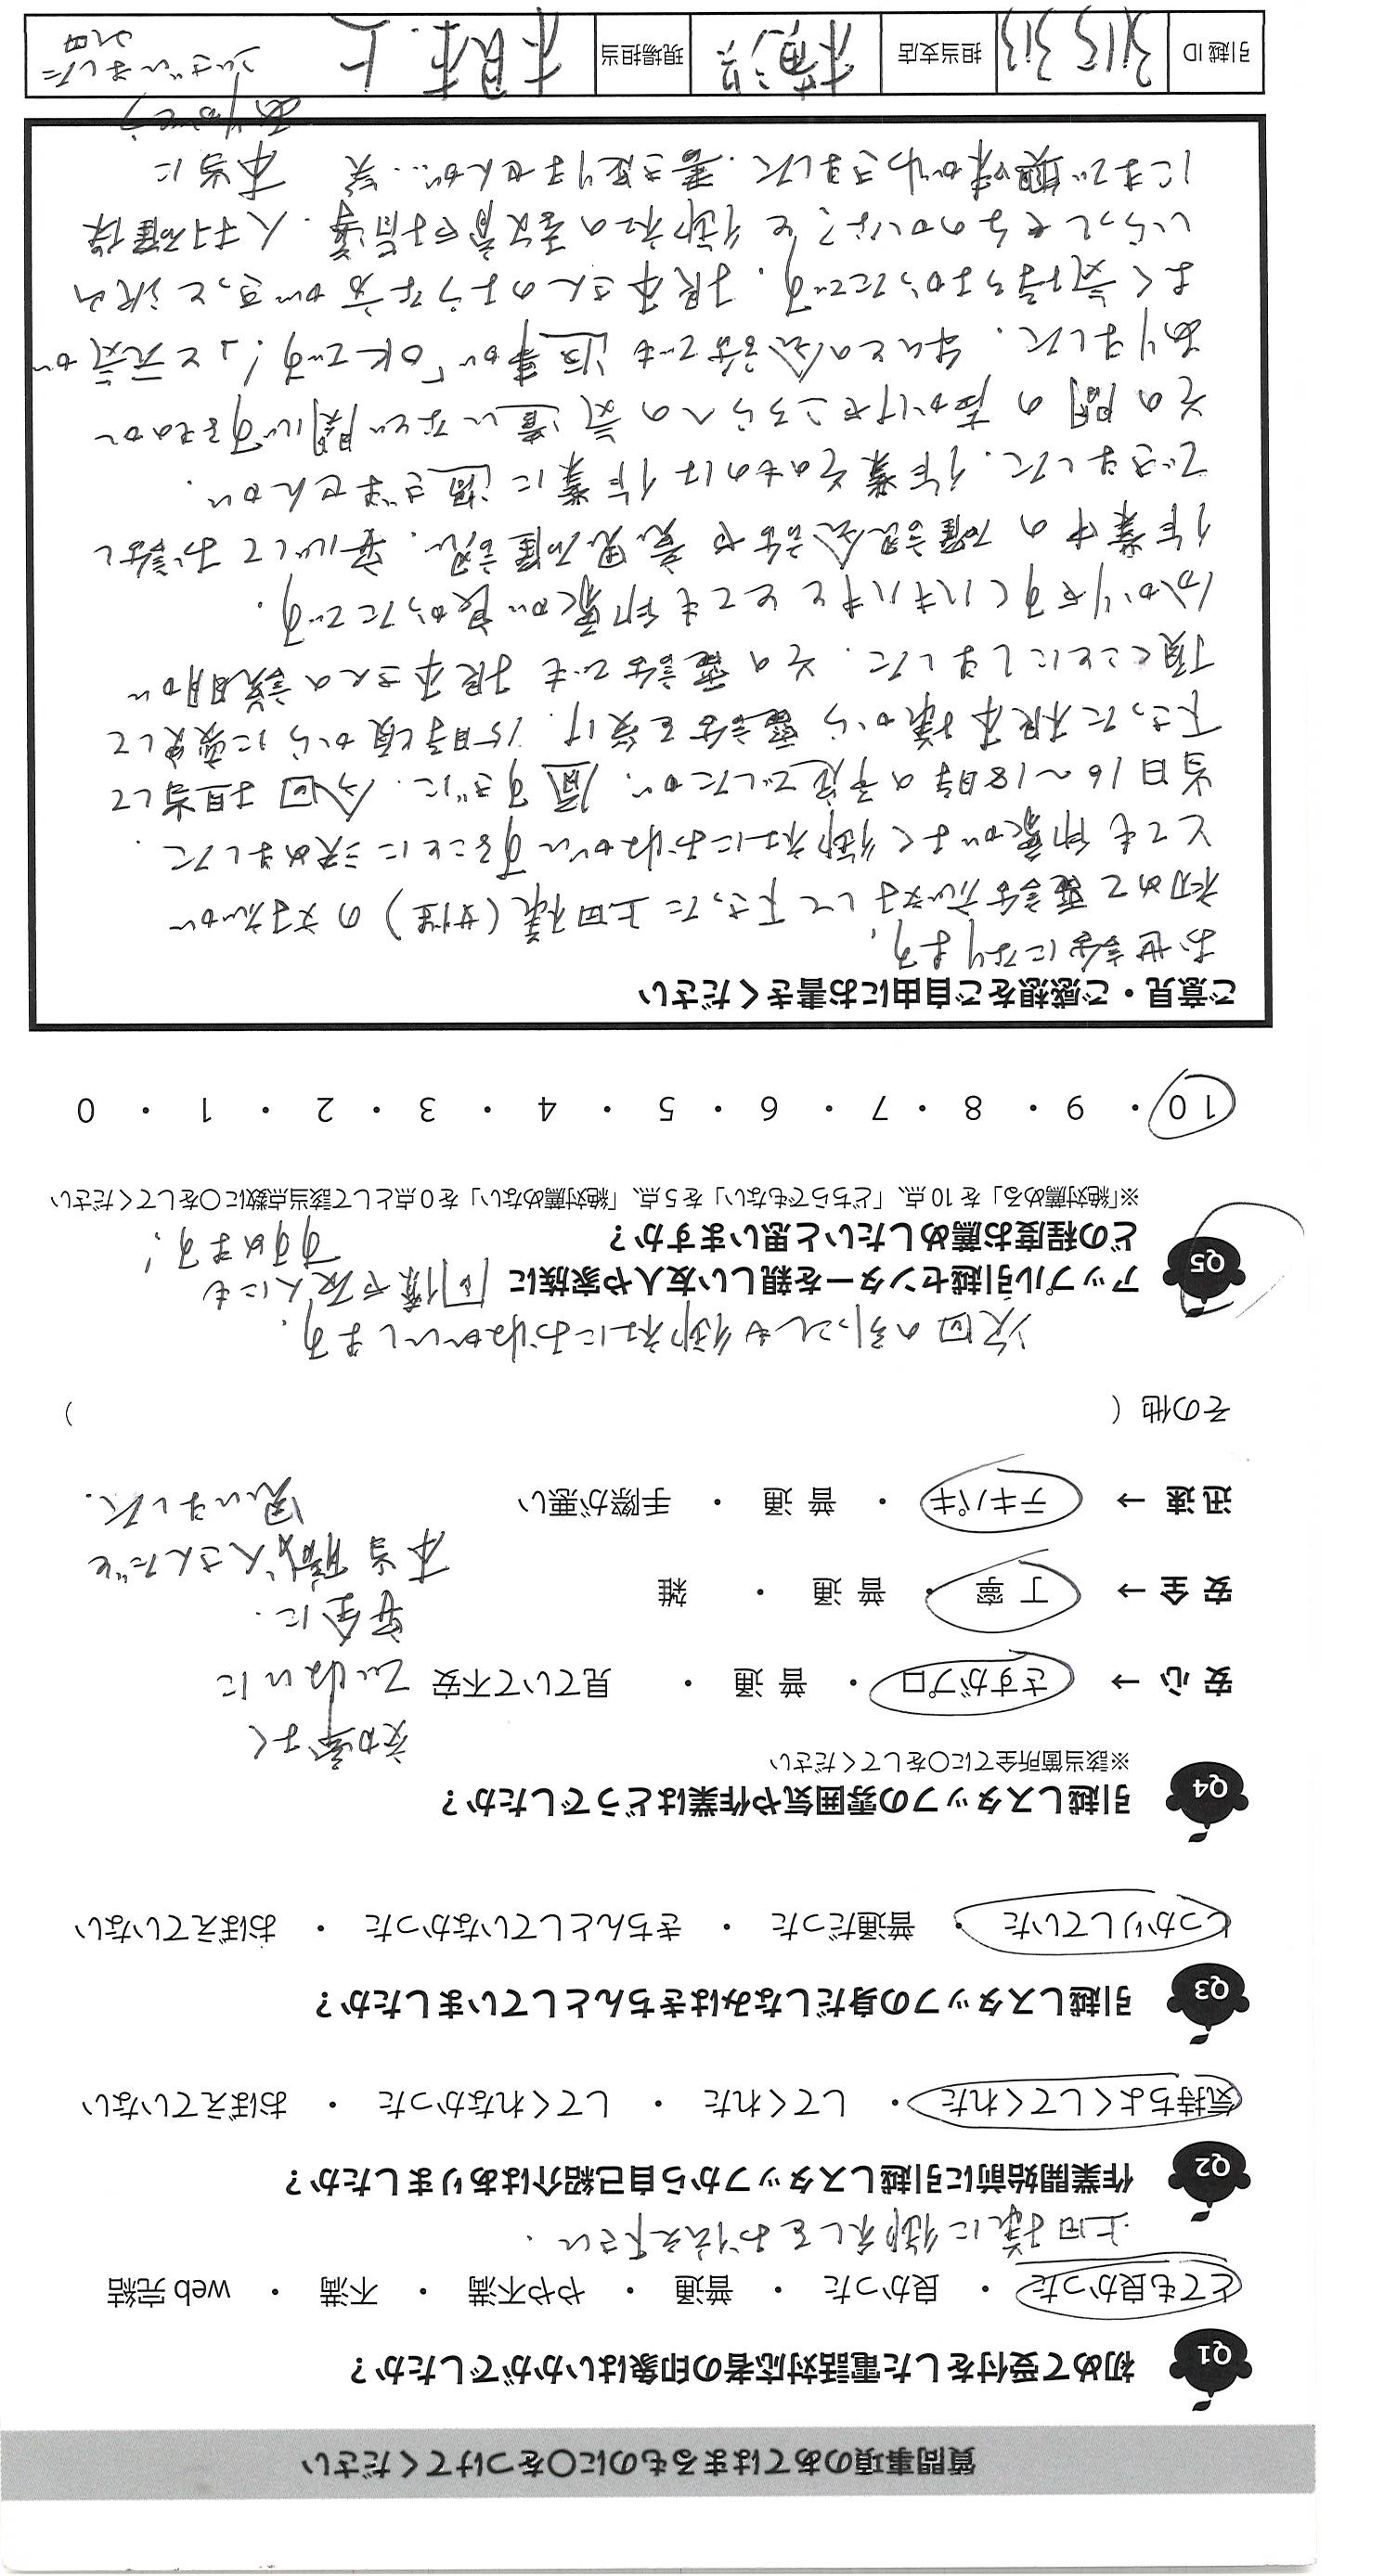 質問事項のあてはまるものに〇をつけてください
Q1 初めて受付をした電話対応者の印象はいかがでしたか？
とても良かった ・ 良かった ・ 普通 ・ やや不満 ・ 不満 ・ web 完結
上田様に御礼をお伝え下さい.
Q2 作業開始前に引越しスタッフから自己紹介はありましたか？
気持ちよくしてくれた ・ してくれた ・ してくれなかった ・ おぼえていない
Q3 引越しスタッフの身だしなみはきちんとしていましたか？
しっかりしていた ・ 普通だった ・ きちんとしていなかった ・ おぼえていない
Q4 引越しスタッフの雰囲気や作業はどうでしたか？
※該当箇所全てに〇をしてください
効率よく
安 心 → さすがプロ ・ 普 通 ・ 見ていて不安 ていねいに
安全に.
安 全 → 丁 寧 ・ 普 通 ・ 雑
本当職人さんだと
迅 速 → テキパキ ・ 普 通 ・ 手際が悪い
思いました.
その他（ ）
次回の引っこしも御社におねがいします.
Q5 アップル引越センターを親しい友人や家族に 同僚や友人にも
どの程度お薦めしたいと思いますか？ すすめます!
※「絶対薦める」を 10 点、「どちらでもない」を 5 点、「絶対薦めない」を 0 点として該当点数に〇をしてください
10 ・ 9 ・ 8 ・ 7 ・ 6 ・ 5 ・ 4 ・ 3 ・ 2 ・ 1 ・ 0
ご意見・ご感想をご自由にお書きください
おせ話になります,
初めて電話応対して下さった上田様(女性)の対応が
とても印象がよく御社におねがいすることに決めました.
当日16〜18時の予定でしたが、昼すぎに.今回担当して
下さった根本様から電話を受け.15時頃からに変更して
頂くことにしました.その電話でも根本さんの説明が
分かりやすくハキハキととても印象が良かったです.
作業中の確認会話や意思確認、安心してお話し
できました.作業そのものは作業に過ぎませんが、
その間の声かけやこちらへの気遣いなど関心するものが
ありました.母との会話でも返事が「OKです!」と元気が
よく気持ちよかったです.根本さんのような方がきっと沢山
いらっしゃるのかな?と御社の教育や指導.人材確保
にまで興味がわきました.書き足りませんが…笑 本当に
ありがとう
ございました
引越 ID 3115313 担当支店 横浜 現場担当 根本.上